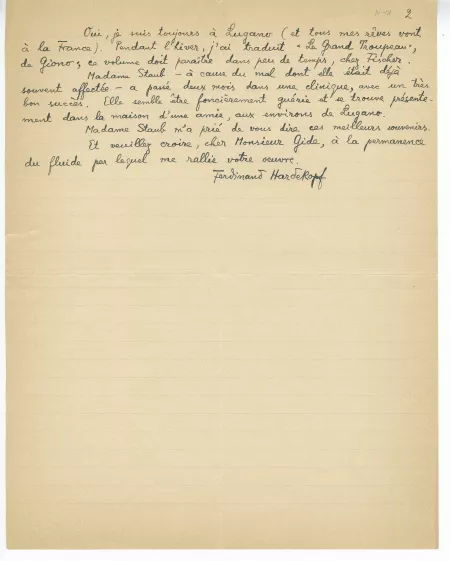 2
Oui, je suis toujours à Lugano (et tous mes rêves vont
à la France). Pendant l'hiver, j'ai traduit "Le Grand Troupeau",
de Giono; ce volume doit paraître dans peu de temps, chez Fischer.
Madame Staub - à cause du mal dont elle était déjà
souvent affectée - a passé deux mois dans une clinique, avec un très
bon succès. Elle semble être foncièrement guérie et se trouve présente-
ment dans la maison d'une amie, aux environs de Lugano.
Madame Staub m'a prié de vous dire ses meilleurs souvenirs.
Et veuillez croire, cher Monsieur Gide, à la permanence
du fluide par lequel me rallie votre oeuvre.
Ferdinand Hardekopf